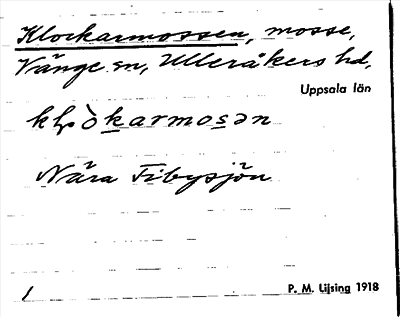 Klockarmossen, mosse,
Vänge sn, Ulleråkers hd,
Uppsala län
Nära Fibysjön
1
P. M. Lijsing 1918